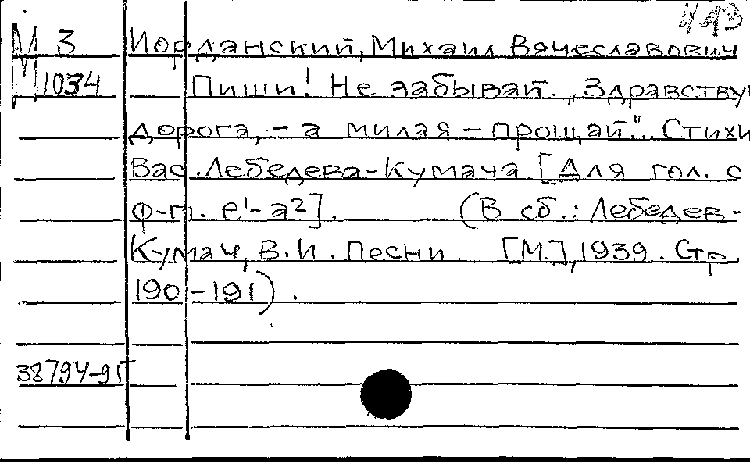 М 3 Иорданский, Михаил Вячеславович
М 1034 Пиши! Не забывай. „Здравствуй
дорога, - а милая - прощай". Стихи
Вас. Лебедева-Кумача. [Для гол. с
ф-п. e¹-a²]. (В сб.: Лебедев-
Кумач, В.И. Песни. [М.], 1939. Стр.
190-191).